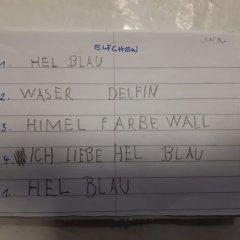 ELFCHEN
1. HEL BLAU
2. WASER DELFIN
3. HIMEL FARBE WALL
4. ICH LIEBE HEL BLAU
1. HEL BLAU